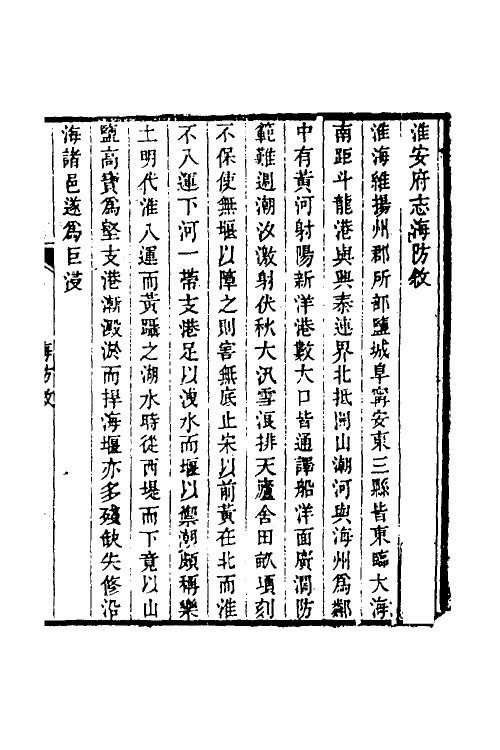 淮安府志海防敘
淮海維揚州郡所部鹽城阜甯安東三縣皆東臨大海
南距斗龍港與興泰連界北抵開山潮河與海州為鄰
中有黃河射陽新洋港數大口皆通譯船洋面廣濶防
範難週潮汐激射伏秋大汛雪浪排天廬舍田畝頃刻
不保使無堰以障之則害無底止宋以前黃在北而淮
不入運下河一帶支港足以洩水而堰以禦潮頗稱樂
土明代淮入運而黃躡之湖水時從西堤而下竟以山
鹽高寶為壑支港漸澱淤而捍海堰亦多殘缺失修沿
海諸邑遂為巨浸
海防敘